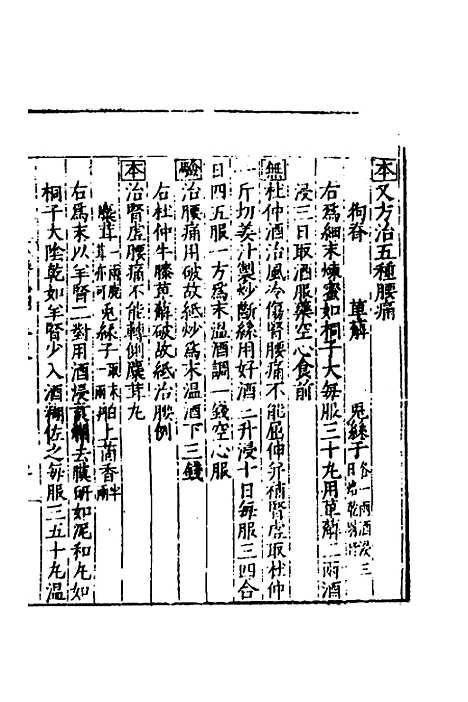 本又方治五種腰痛
狗脊　萆薢　兎絲子各一兩酒浸三日
右爲細末煉蜜如桐子大每服三十丸用萆薢二兩酒
浸三日取酒服藥空心食前
無杜仲酒治風冷傷腎腰痛不能屈伸分補腎虛取杜仲
一斤切姜汁製炒斷絲用好酒二升浸十日每服三四合
日四五服一方爲末温酒調一錢空心服
驗治腰痛用破故紙炒爲末温酒下三錢
右杜仲牛膝萆薢破故紙治腰例
本治腎虛腰痛不能轉側麋茸丸
麋茸一兩鹿茸亦可兎絲子取末一兩舶上茴香半兩
右爲末以羊腎二對用酒浸去膜研如泥和丸如
桐子大陰乾如羊腎少入酒糊佐之每服三五十丸温